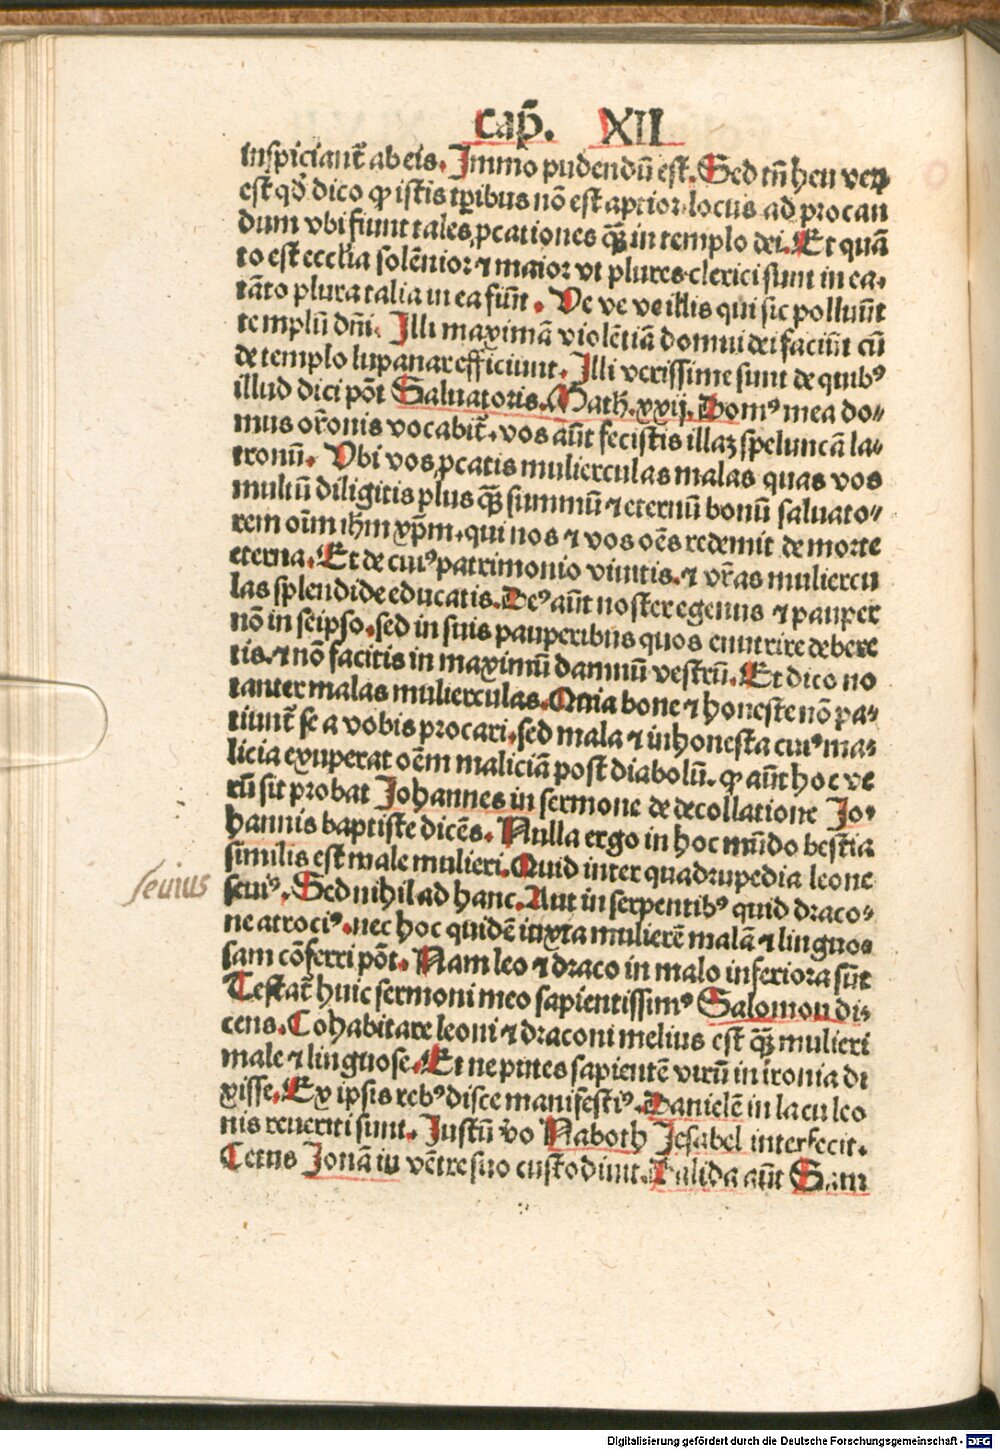 Cap̄. XII
inspiciant᷑ ab eis. Immo pudendū est. Sed tn̄ heu veꝝ
est qd̄ dico ꝙ istis tꝑibus nō est aptior locus ad procan
dum vbi fiunt tales ꝓcationes ꝙ̄ in templo dei. Et quā
to est eccl̄ia solēnior ⁊ maior vt plures clerici sunt in ea.
tāto plura talia in ea fiūt. Ve ve ve illis qui sic polluūt
templū dn̄i. Illi maximā violētiā domui dei faciūt cū
de templo lupanar efficiunt. Illi verissime sunt de quibꝰ
illud dici pōt Saluatoris. Math. xxij. Domꝰ mea do⸗
mus or̄onis vocabit᷑. vos aūt fecistis illaꝫ speluncā la⸗
tronū. Vbi vos ꝓcatis mulierculas malas quas vos
multū diligitis plus ꝙ̄ summū ⁊ eternū bonū saluato⸗
rem oīm ihm̄ xp̄m. qui nos ⁊ vos oēs redemit de morte
eterna. Et de cuiꝰ patrimonio viuitis. ⁊ vr̄as muliercu
las splendide educatis. Deꝰ aūt noster egenus ⁊ pauper
nō in seipso. sed in suis pauperibus quos enutrire debere
tis. ⁊ nō facitis in maximū damnū vestrū. Et dico no
tanter malas mulierculas. Quia bone ⁊ honeste nō pa⸗
tiunt᷑ se a vobis procari. sed mala ⁊ inhonesta cuiꝰ ma⸗
licia exuperat oēm maliciā post diabolū. ꝙ aūt hoc ve
rū sit probat Johannes in sermone de decollatione Jo⸗
hannis baptiste dicēs. Nulla ergo in hoc mūdo bestia
similis est male mulieri. Quid inter quadrupedia leone
seuius
seuiꝰ. Sed nihil ad hanc. Aut in serpentibꝰ quid draco⸗
ne atrociꝰ. nec hoc quidē iuxta mulierē malā ⁊ linguo⸗
sam cōferri pōt. Nam leo ⁊ draco in malo inferiora sūt
Testat᷑ huic sermoni meo sapientissimꝰ Salomon di⸗
cens. Cohabitare leoni ⁊ draconi melius est ꝙ̄ mulieri
male ⁊ linguose. Et ne putes sapientē virū in ironia di
xisse. Ex ipsis rebꝰ disce manifestiꝰ. Danielē in lacu leo
nis reueriti sunt. Justū v̄o Naboth Jesabel interfecit.
Cetus Jonā in vētre suo custodiuit. Dalida aūt Sam
Digitalisierung gefördert durch die Deutsche Forschungsgemeinschaft - DFG